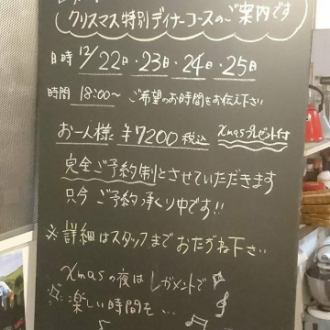 クリスマス特別ディナーコースのご案内です
日時 12/22日・23日・24日・25日
時間 18:00〜 ご希望のお時間をお伝え下さい
お一人様 ¥7200税込 Xmasプレゼント付
完全ご予約制とさせていただきます
只今 ご予約承り中です!!
※詳細はスタッフまでおたずね下さい
Xmasの夜は レガメントで
楽しい時間を…